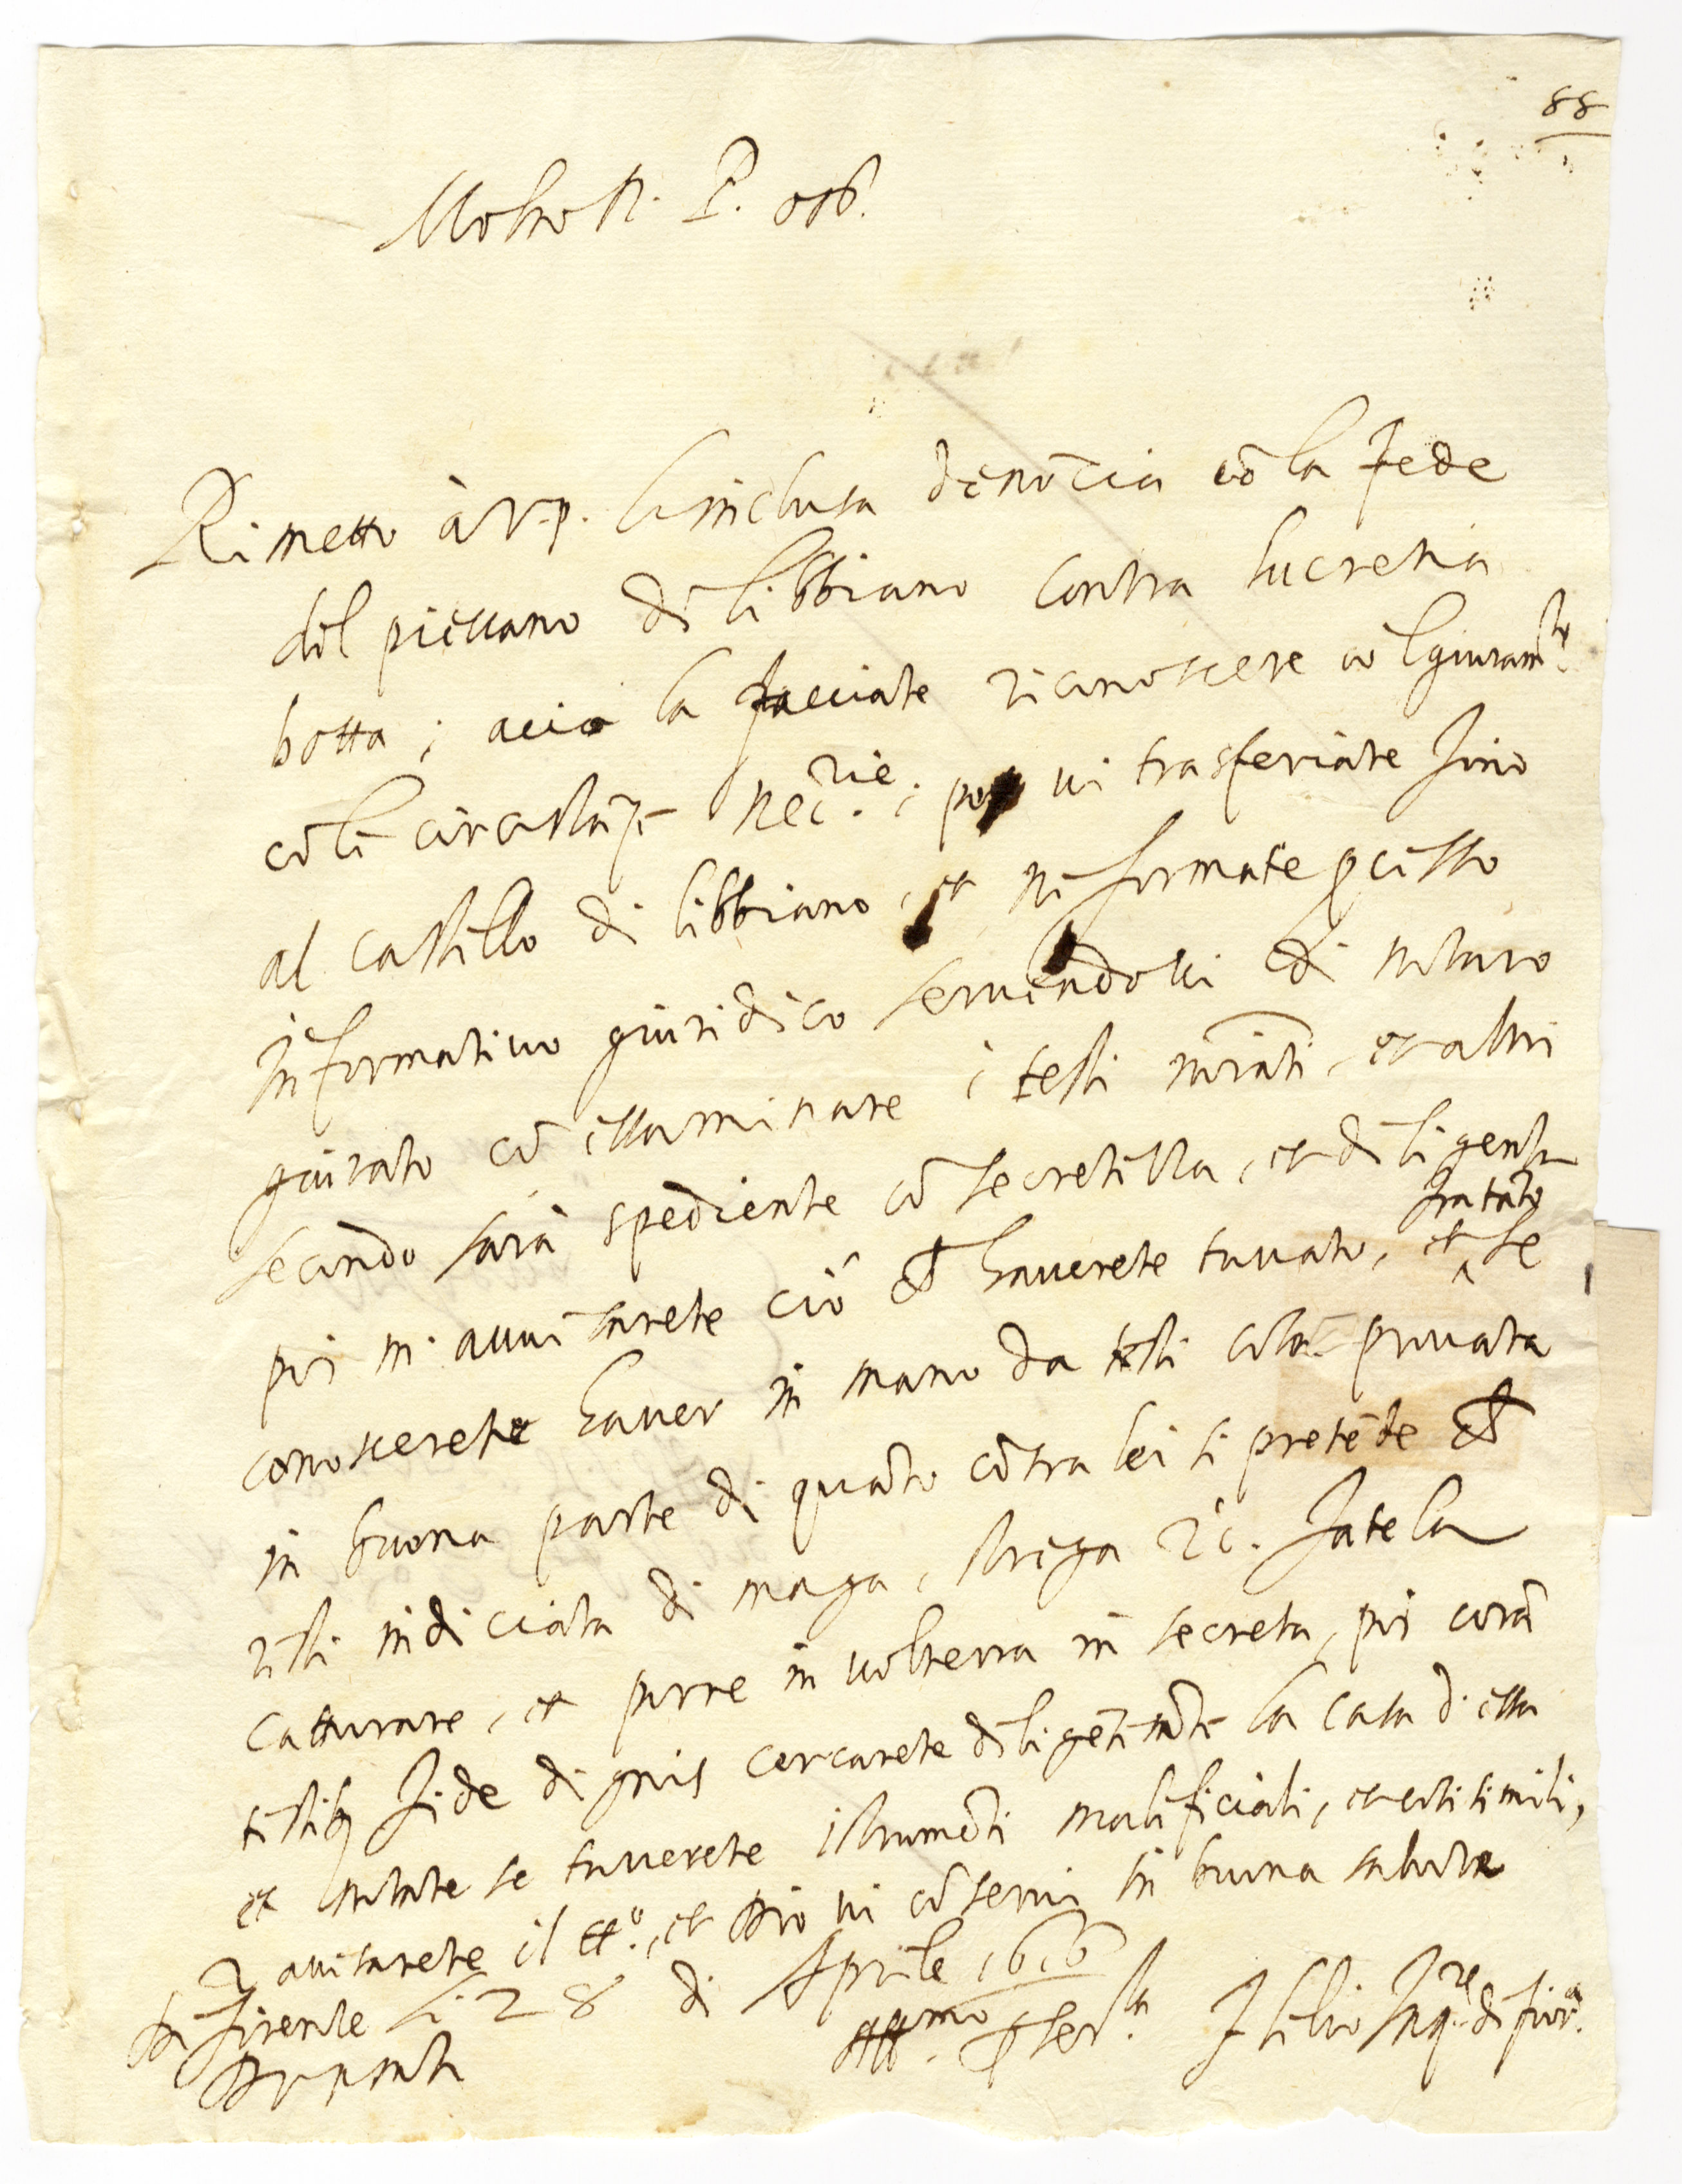 88
Molto R. P. oss.
Rimetto à V. P. l'inclusa denõcia cõ la fede
del pievano di libbiano contra lucretia
botta; acciò la facciate riconoscere cõ l giuram.to
cõ le circõstãze nec.rie; poi vi trasferiate fino
al castello di libbiano, et ne formate pcesso
informativo giuridico servendovi di notaro
giurato cõ essaminare i testi nõiati, et altri
secondo sarà spediente cõ secretezza, et diligenza
poi m'avvisarete ciò ch haverete trovato, et se
fra tãto
conoscerete haver in mano da testi cosa provata
in buona parte di quãto cõtra lei si pretẽde ch
resti indiciata di maga, strega &c. fatela
catturare, et porre in volterra in secreta, poi corã
testibq fide dignis cercarete diligẽtemẽte la casa d'essa
et notate se troverete istrumẽti maleficiali, et cose simili,
&. avisarete il tt.o, et Dio vi cõservi in buona salute
Di firenze li 28 di Aprile 1616
D. V. P. molto
Aff.mo p ser.la F. lelio Inq.re di fior.a